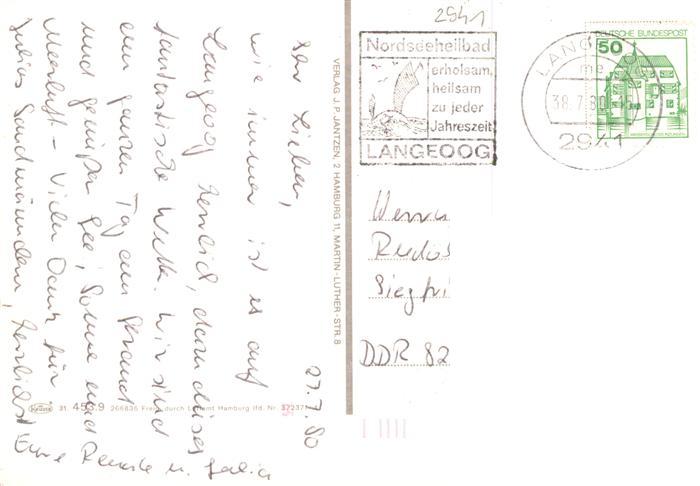 Ihr Lieben,
wie immer ist es auf
Langeoog herrlich, dazu dieses
fantastische Wetter. Wir sind
den ganzen Tag am Strand
und genießen See, Sonne und
Meerluft - Vielen Dank für
Julias Sandmännchen, herzlichst
Eure u. Julia
27.7.80
VERLAG J. P. JANTZEN, 2 HAMBURG 11, MARTIN-LUTHER-STR. 8
31. 453.9 266836 Freig. durch Luftamt Hamburg lfd. Nr.
2941
Nordseeheilbad
erholsam,
heilsam
zu jeder
Jahreszeit
LANGEOOG
LANGEOOG
2941
DEUTSCHE BUNDESPOST
50
Siegfri
DDR 82